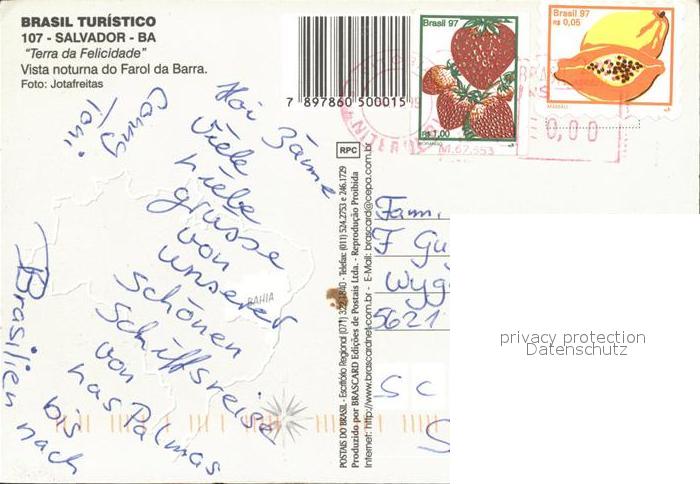 BRASIL TURÍSTICO
107 - SALVADOR - BA
"Terra da Felicidade"
Vista noturna do Farol da Barra.
Foto: Jotafreitas
7 897860 500015
Brasil 97
R$ 1,00
MORANGO
Brasil 97
R$ 0,05
MAMÃO
0,00
RPC
Hoi Zäme
Viele
liebe
grüsse
von
unserer
schönen
Schiffsreise
von
Las Palmas
bis
nach
Brasilien
Conny
Toni
BAHIA
POSTAIS DO BRASIL - Escritório Regional (071) - Telefax: (011) 524.2753 e 246.1729
Produzido por BRASCARD Edições de Postais Ltda. - Reprodução Proibida
Internet: http://www.brascardnet.com.br - E-Mail: brascard@cepa.com.br
Fam.
F Gu
Wyg
5621
SC
S
privacy protection
Datenschutz